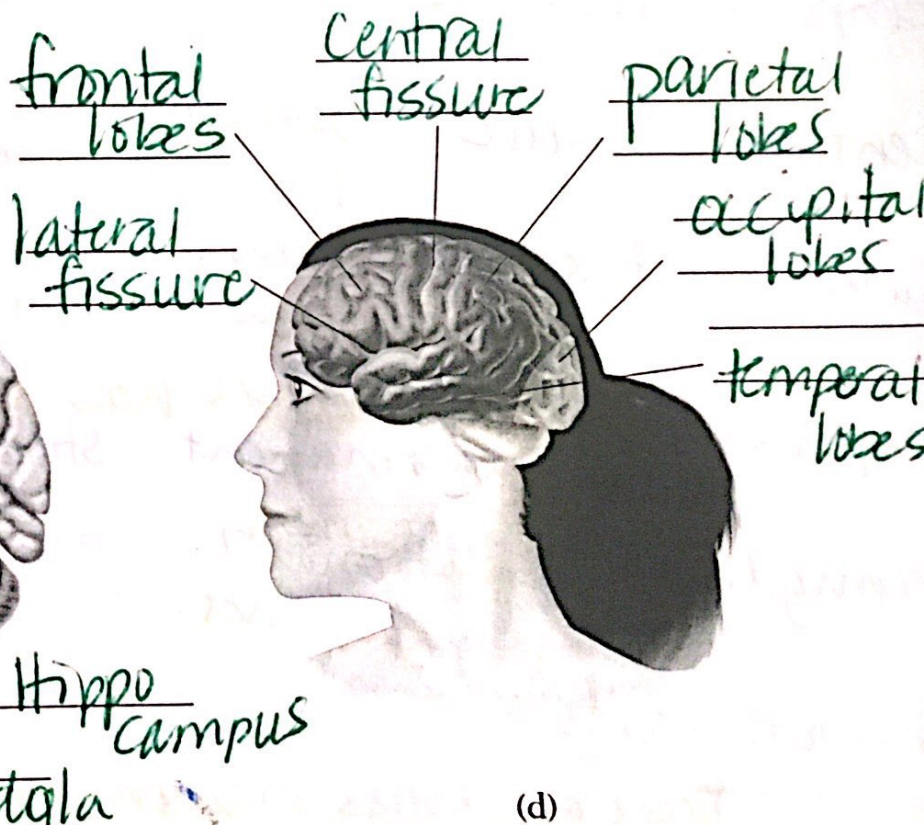 frontal
lobes
central
fissure
parietal
lobes
lateral
fissure
occipital
lobes
temperat
lobes
Hippo
campus
(d)